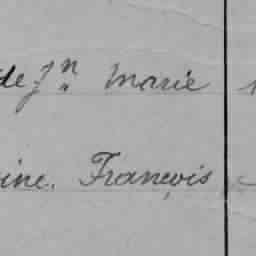 de Jⁿ Marie
ine. François